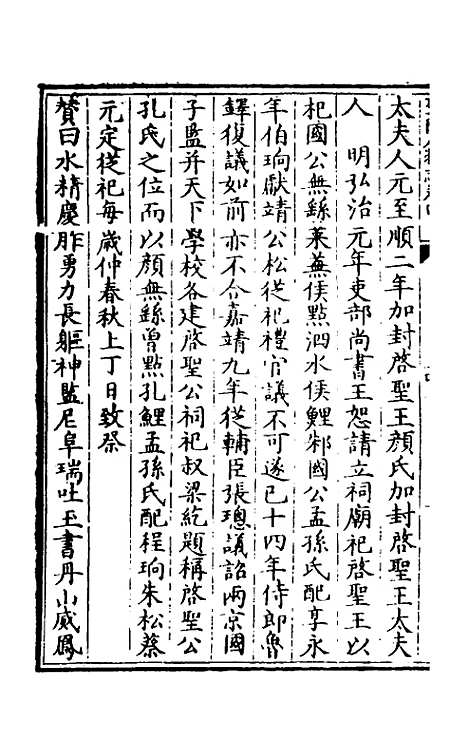 太夫人元至順二年加封啓聖王顔氏加封啓聖王太夫
人　明弘治元年吏部尚書王恕請立祠廟祀啓聖王以
杞國公無繇萊蕪侯點泗水侯鯉邾國公孟孫氏配享永
年伯珦獻靖公松從祀禮官議不可遂已十四年侍郎魯
鐸復議如前亦不合嘉靖九年從輔臣張璁議詔兩京國
子監并天下學校各建啓聖公祠祀叔梁紇題稱啓聖公
孔氏之位而以顔無繇曾點孔鯉孟孫氏配程珦朱松蔡
元定從祀每歲仲春秋上丁日致祭
贊曰水精慶胙勇力長軀神監尼阜瑞吐玉書丹山威鳳